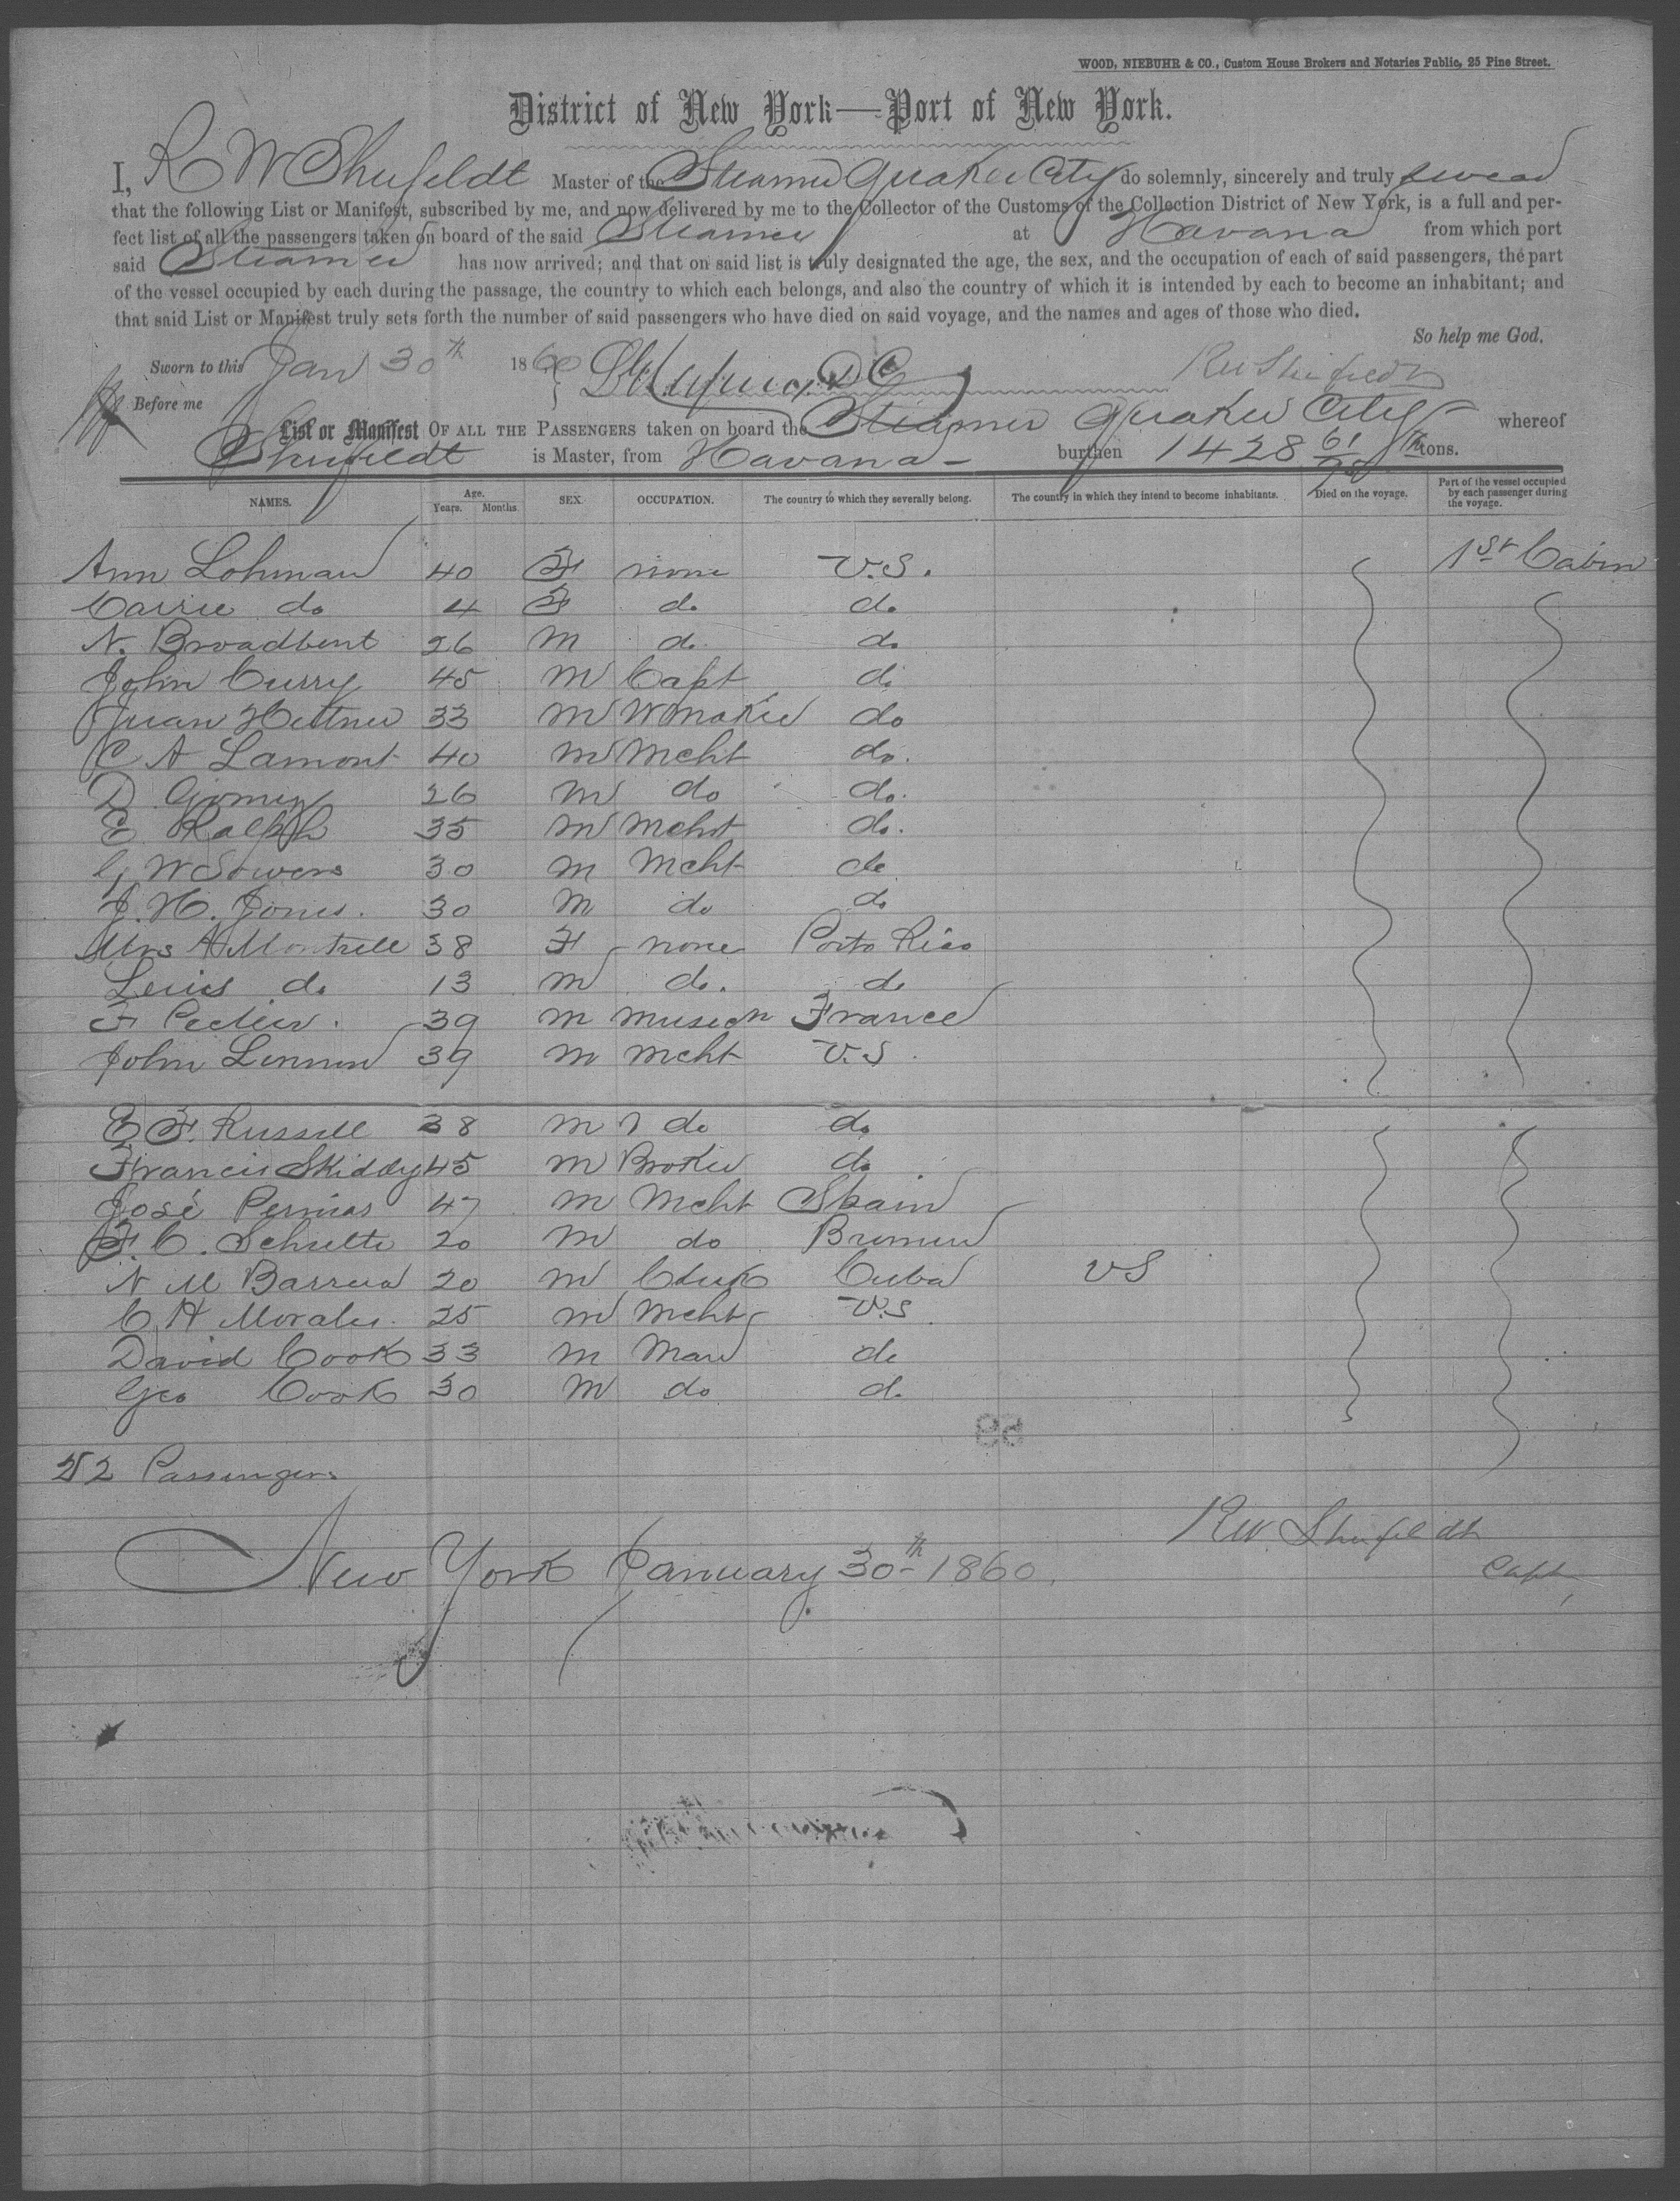 WOOD, NIEBUHR & CO., Custom House Brokers and Notaries Public, 25 Pine Street.
District of New York—Port of New York.
I, R W Shufeldt Master of the Steamer Quaker City do solemnly, sincerely and truly swear
that the following List or Manifest, subscribed by me, and now delivered by me to the Collector of the Customs of the Collection District of New York, is a full and per-
fect list of all the passengers taken on board of the said Steamer at Havana from which port
said Steamer has now arrived; and that on said list is truly designated the age, the sex, and the occupation of each of said passengers, the part
of the vessel occupied by each during the passage, the country to which each belongs, and also the country of which it is intended by each to become an inhabitant; and
that said List or Manifest truly sets forth the number of said passengers who have died on said voyage, and the names and ages of those who died.
So help me God.
Sworn to this Jan 30th 1860 RW Shufeldt
Before me
List or Manifest OF ALL THE PASSENGERS taken on board the Steamer Quaker City whereof
Shufeldt is Master, from Havana - burthen 1428 61/95 tons.
NAMES. Age. Years. Months. SEX. OCCUPATION. The country to which they severally belong. The country in which they intend to become inhabitants. Died on the voyage. Part of the vessel occupied by each passenger during the voyage.
Ann Lohman 40 F none U.S. 1st Cabin
Carrie do 4 F do do
N. Broadbent 26 M do do
John Curry 45 M Capt do
Juan Hettner 33 M W Maker do
C A Lamont 40 M Mcht do.
D Gomez 26 M do do.
E Ralph 35 M Mcht do.
G W Sowers 30 M Mcht do
J. H. Jones. 30 M do do
Mrs A Montrell 38 F none Porto Rico
Leuis do 13 M do. do
F 39 M Musicn France
John Lennen 39 M Mcht U.S.
E F. Russell 38 M do do
Francis Skiddy 45 M Broker do
José Pernias 47 M Mcht Spain
F. C. Schulte 20 M do Bremen
N M Barrera 20 M Clerk Cuba US
C H Morales. 25 M Mcht U.S
David Cook 33 M Man do
Geo Cook 30 M do do
22 Passengers
RW. Shufeldt
New York January 30th 1860.
Capt